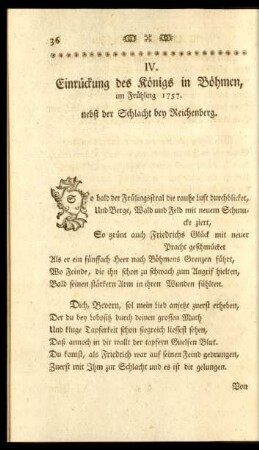 36
IV.
Einrückung des Königs in Böhmen,
im Frühling 1757.
nebst der Schlacht bey Reichenberg.
So bald der Frülingsstral die rauhe Luft durchblicket,
Und Berge, Wald und Feld mit neuem Schmu-
cke ziert,
So grünt auch Friedrichs Glück mit neuer
Pracht geschmücket
Als er ein fünffach Heer nach Böhmens Grenzen führt,
Wo Feinde, die ihn schon zu schwach zum Angrif hielten,
Bald seinen stärkern Arm in ihren Wunden fühlten.
Dich, Bevern, sol mein Lied anjetzt zuerst erheben,
Der du bey Lobositz durch deinen grossen Muth
Und kluge Tapferkeit schon siegreich liessest sehen,
Daß annoch in dir wallt der tapfern Guelfen Blut.
Du kamst, als Friedrich war auf seinen Feind gedrungen,
Zuerst mit Ihm zur Schlacht und es ist dir gelungen.
Von